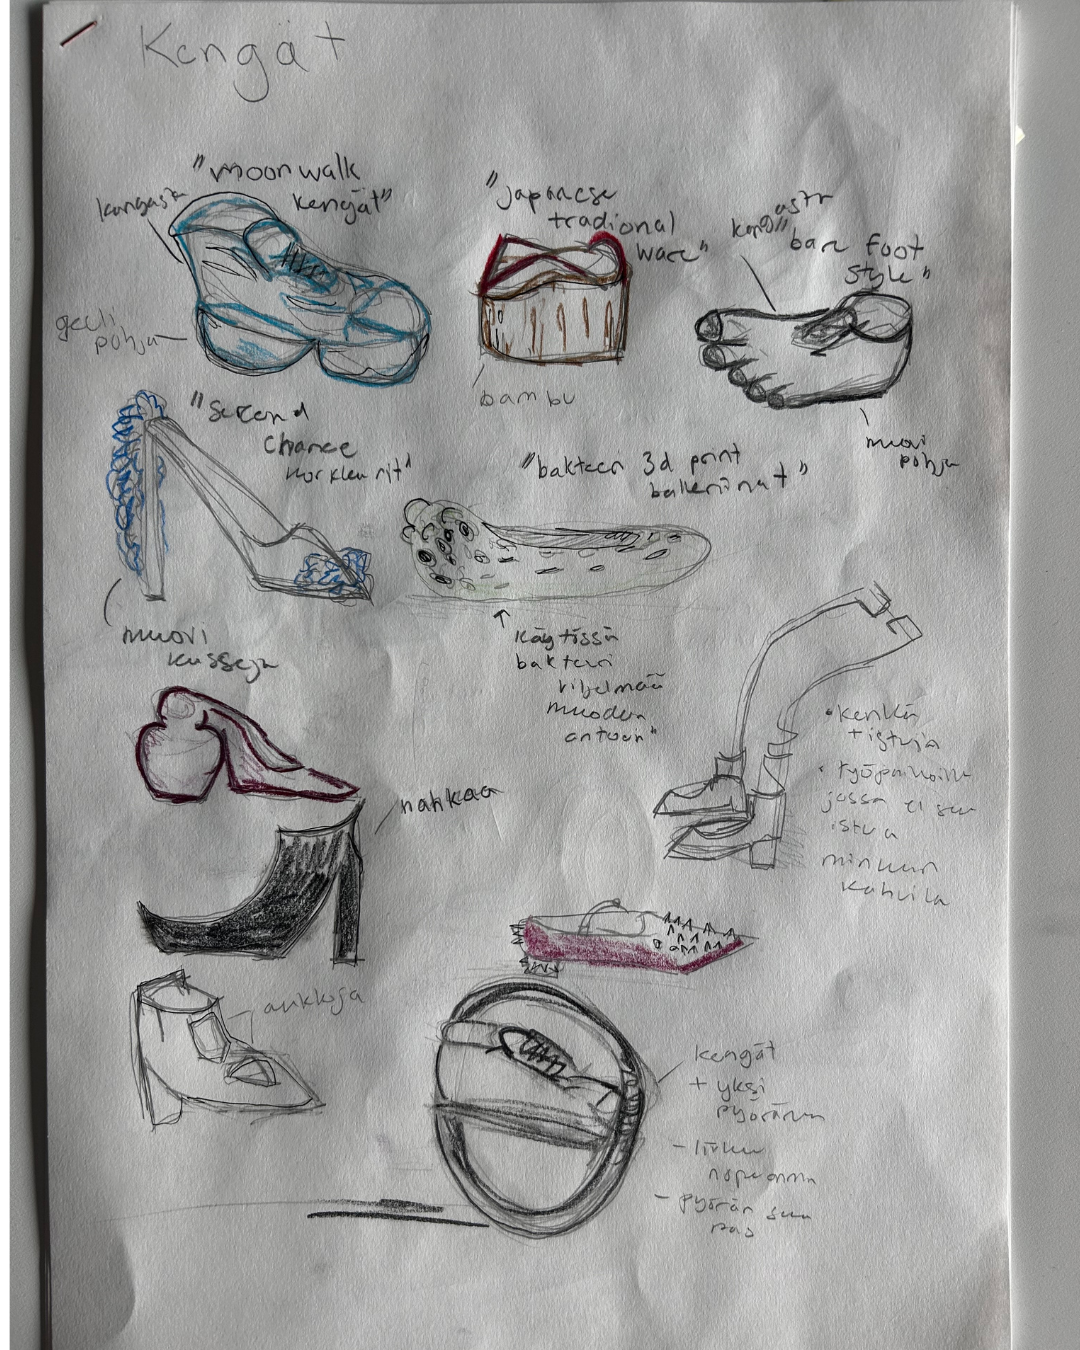 Kengät
"moonwalk
kengät"
kangasta
geeli
pohja
"japanese
tradional
ware"
bambu
"bare foot
style"
muovi
pohja
"Second
chance
korkkarit"
muovi
kusseja
"bakteeri 3d print
balleriinat"
käytössä
bakteeri
viljelmää
muodon
antoon"
nahkaa
• kenkä
+ istuja
• työpaikoille
jossa ei saa
istua
aukkoja
kengät
+ yksi
pyöränen
- liikku
nopeamma
- pyörän